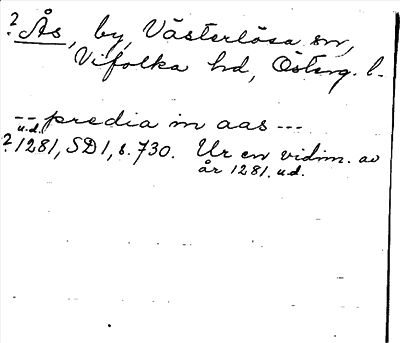 ? Ås, by, Västerlösa sn,
Vifolka hd, Österg. l.
-- predia in aas ---
u.d.
? 1281, SD 1, s. 730. Ur en vidim. av
år 1281. u.d.